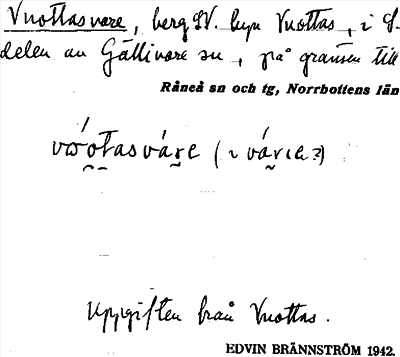 Vuottasvare, berg SV. byn Vuottas, i S.
delen av Gällivare sn, på gränsen till
Råneå sn och tg, Norrbottens län
vωotasvárε (i várιε?)
Uppgiften från Vuottas.
EDVIN BRÄNNSTRÖM 1942.